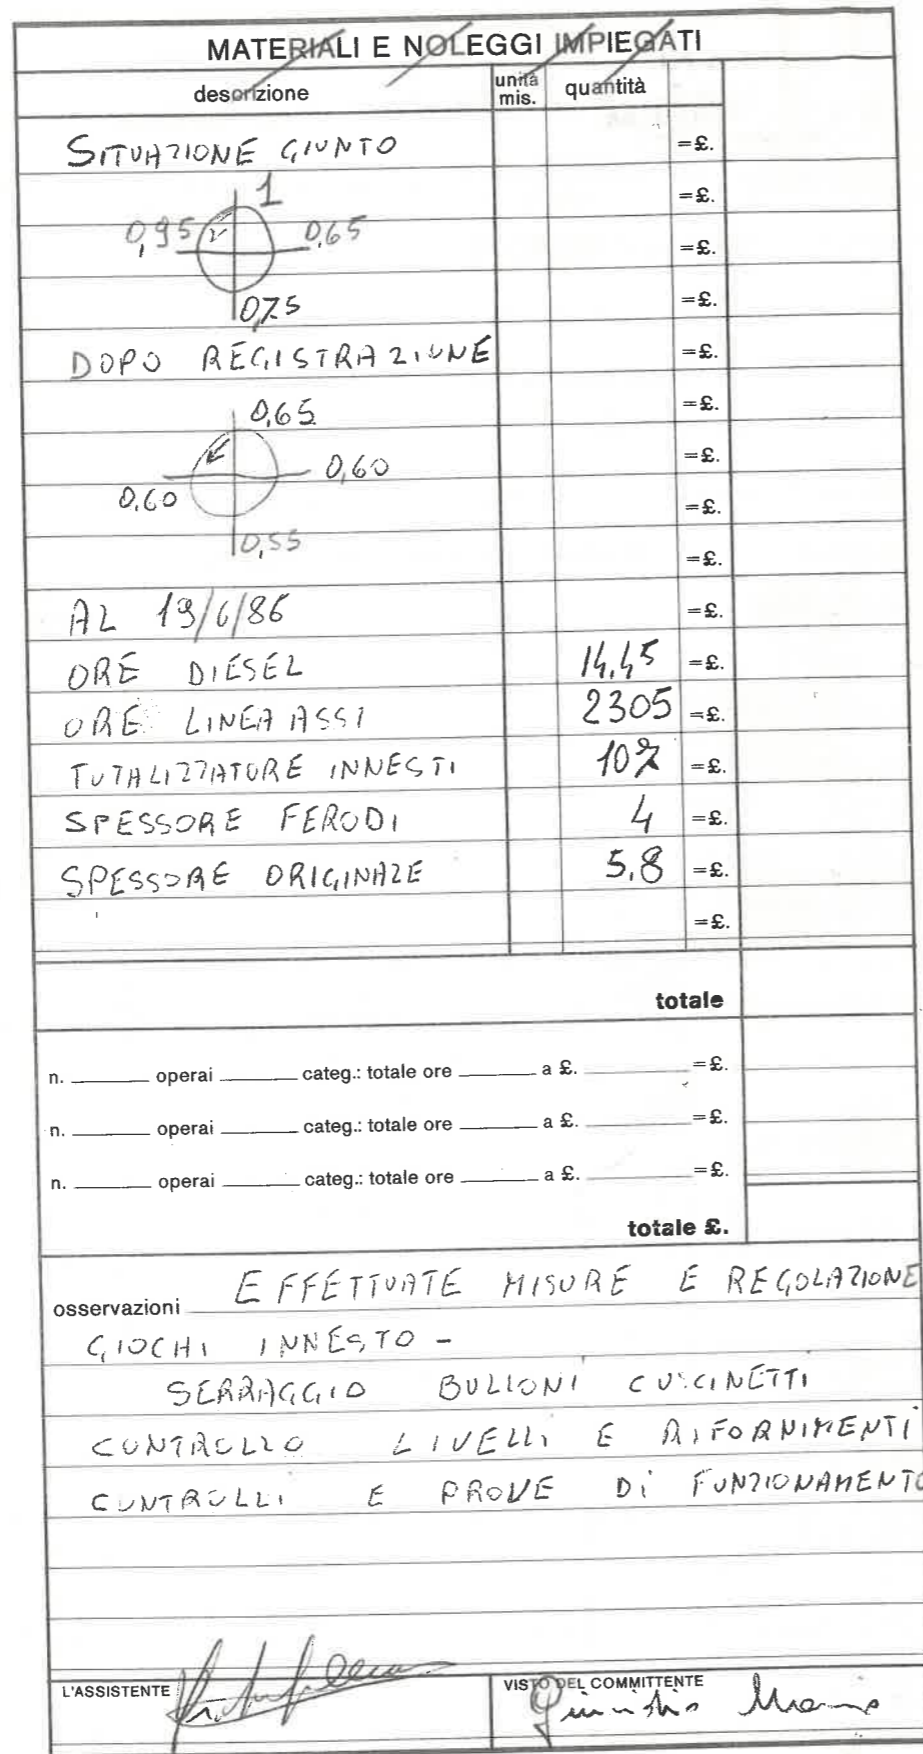 MATERIALI E NOLEGGI IMPIEGATI
descrizione unità mis. quantità
SITUAZIONE GIUNTO =£.
1 =£.
0,95 0,65 =£.
0,75 =£.
DOPO REGISTRAZIONE =£.
0,65 =£.
0,60 =£.
0,60 =£.
0,55 =£.
AL 19/6/86 =£.
ORE DIESEL 14,45 =£.
ORE LINEA ASSI 2305 =£.
TOTALIZZATORE INNESTI =£.
SPESSORE FERODI 4 =£.
SPESSORE ORIGINALE 5,8 =£.
=£.
totale
n. operai categ.: totale ore a £. =£.
n. operai categ.: totale ore a £. =£.
n. operai categ.: totale ore a £. =£.
totale £.
osservazioni EFFETTUATE MISURE E REGOLAZIONE
GIOCHI INNESTO -
SERRAGGIO BULLONI CUSCINETTI
CONTROLLO LIVELLI E RIFORNIMENTI
CONTROLLI E PROVE Di FUNZIONAMENTO
L'ASSISTENTE
VISTO DEL COMMITTENTE